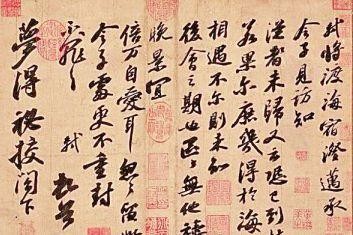 軾將渡海宿澄邁承
令子見訪知
從者未歸又云恐已到桂
若果爾庶幾得於海
相遇不爾則未知
後會之期也區區無他禱
晚景宜
倍萬自愛耳匆匆留此
令子處更不重封
不罪不罪 軾 頓首
夢得秘校閣下